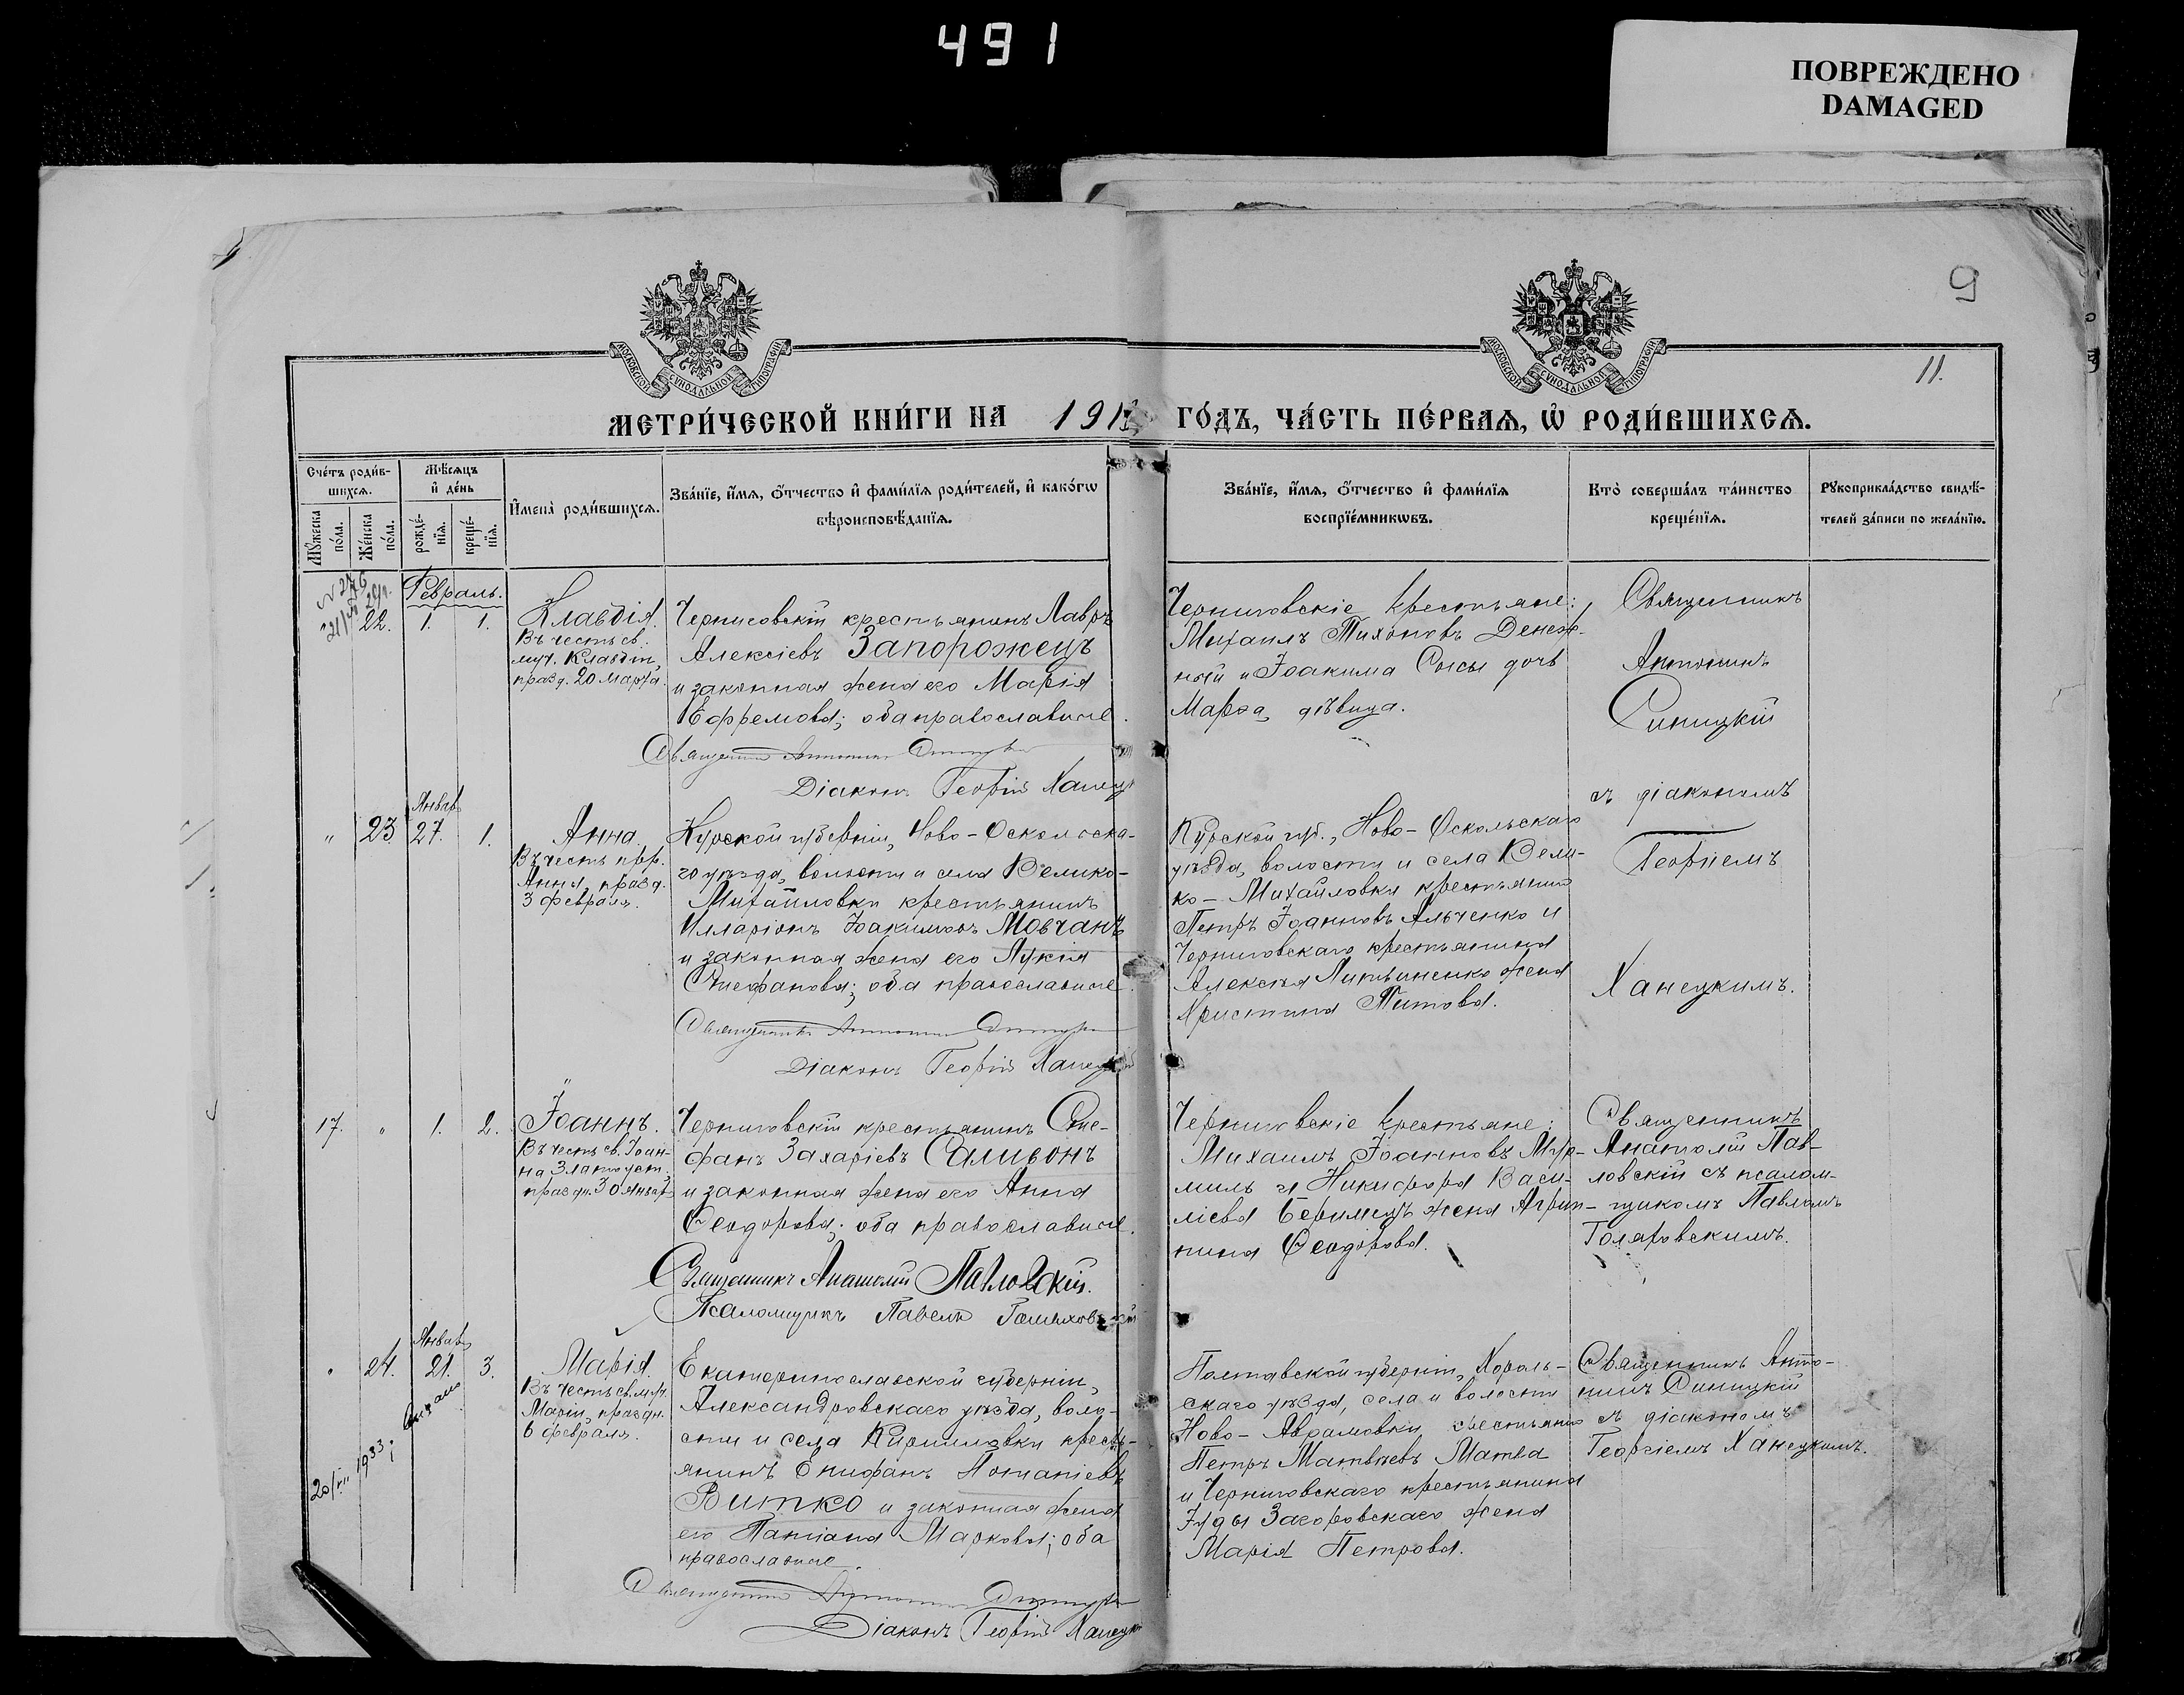 491
ПОВРЕЖДЕНО
DAMAGED
9
11.
МОСКОВСКОЙ СУНОДАЛЬНОЙ ТИПОГРАФІИ
МОСКОВСКОЙ СУНОДАЛЬНОЙ ТИПОГРАФІИ
МЕТРИ́ЧЕСКОЙ КНИ́ГИ НА 191
ГО́ДЪ, ЧА́СТЬ ПЕ́РВАЯ, Ѡ҆ РОДИ́ВШИХСЯ.
Сче́тъ роди́в-
шихся.
Мѣ́сяцъ
и҆ де́нь
Мꙋ́жеска
по́ла.
Же́нска
по́ла.
рожде́-
нїя.
креще́-
нїя.
И҆мена̀ роди́вшихся.
Зва́нїе, и҆́мя, о҆́тчество и҆ фами́лїя роди́телей, и҆ како́гѡ
вѣроисповѣ́данїя.
Зва́нїе, и҆́мя, о҆́тчество и҆ фами́лїя
воспрїе́мникѡвъ.
Кто̀ соверша́лъ та́инство
креще́нїя.
Рꙋкоприкла́дство свидѣ́-
телей за́писи по жела́нїю.
Февраль.
22. 1. 1.
Клавдія.
Въ честь св.
муч. Клавдіи,
празд. 20 марта.
Черниговскій крестьянинъ Лавръ
Алексіевъ Запорожецъ
и законная жена его Марія
Ефремова; оба православные.
Діаконъ Георгій Ханец
Черниговскіе крестьяне:
Михаилъ Тихоновъ Денеж-
ный и Іоакима Сысы дочь
Марѳа, дѣвица.
Священникъ
Антонинъ
Синицкій
съ діакономъ
Георгіемъ
Ханецкимъ.
Январь
" 23 27. 1.
Анна.
Въ честь прор.
Анны, празд.
3 февраля.
Курской губерніи, Ново-Оскольска-
го уѣзда, волости и села Велико-
Михайловки крестьянинъ
Илларіонъ Іоакимовъ Мовчанъ
и законная жена его Лукія
Стефанова; оба православные.
Діаконъ Георгій Ханец
Курской губ., Ново-Оскольскаго
уѣзда, волости и села Вели-
ко-Михайловки крестьянинъ
Петръ Іоанновъ Альченко и
Черниговскаго крестьянина
Алексѣя Литвиненко жена
Христина Титова.
17. " 1. 2.
Іоаннъ.
Въ честь св. Іоан-
на Златоуст.
праздн. 30 января
Черниговскій крестьянинъ Сте-
фанъ Захаріевъ Саливонъ
и законная жена его Анна
Ѳеодорова; оба православные.
Священникъ Анатолій Павловскій.
Псаломщикъ Павелъ
Черниговскіе крестьяне:
Михаилъ Іоанновъ Мур-
миль и Никифора Васи-
ліева жена Агрип-
пина Ѳеодорова.
Священникъ
Анатолій Пав-
ловскій съ псалом-
щикомъ Павломъ
Январь
" 24. 21. 3.
Марія.
Въ честь св. муч.
Маріи, праздн.
6 февраля.
1933
Екатеринославской губерніи,
Александровскаго уѣзда, воло-
сти и села Кирилловки кресть-
янинъ Епифанъ Потапіевъ
Витко и законная жена
его Татіана Маркова; оба
православные.
Діаконъ Георгій Ханецк
Полтавской губерніи, Хороль-
скаго уѣзда, села и волости
Ново-Аврамовки, крестьянинъ
Петръ Матвѣевъ Матва
и Черниговскаго крестьянина
Іуды Загоровскаго жена
Марія Петрова.
Священникъ Анто-
нинъ Синицкій
съ діакономъ
Георгіемъ Ханецкимъ.